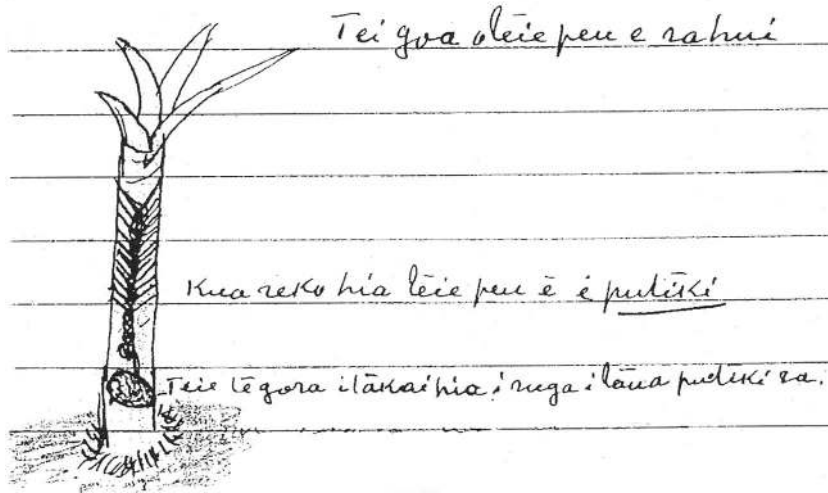 Tei goa o tēie peu e rahui
Kua reko hia tēie peu ē e putiki
Teie te gora i tākai hia i ruga i tāua putiki ra.